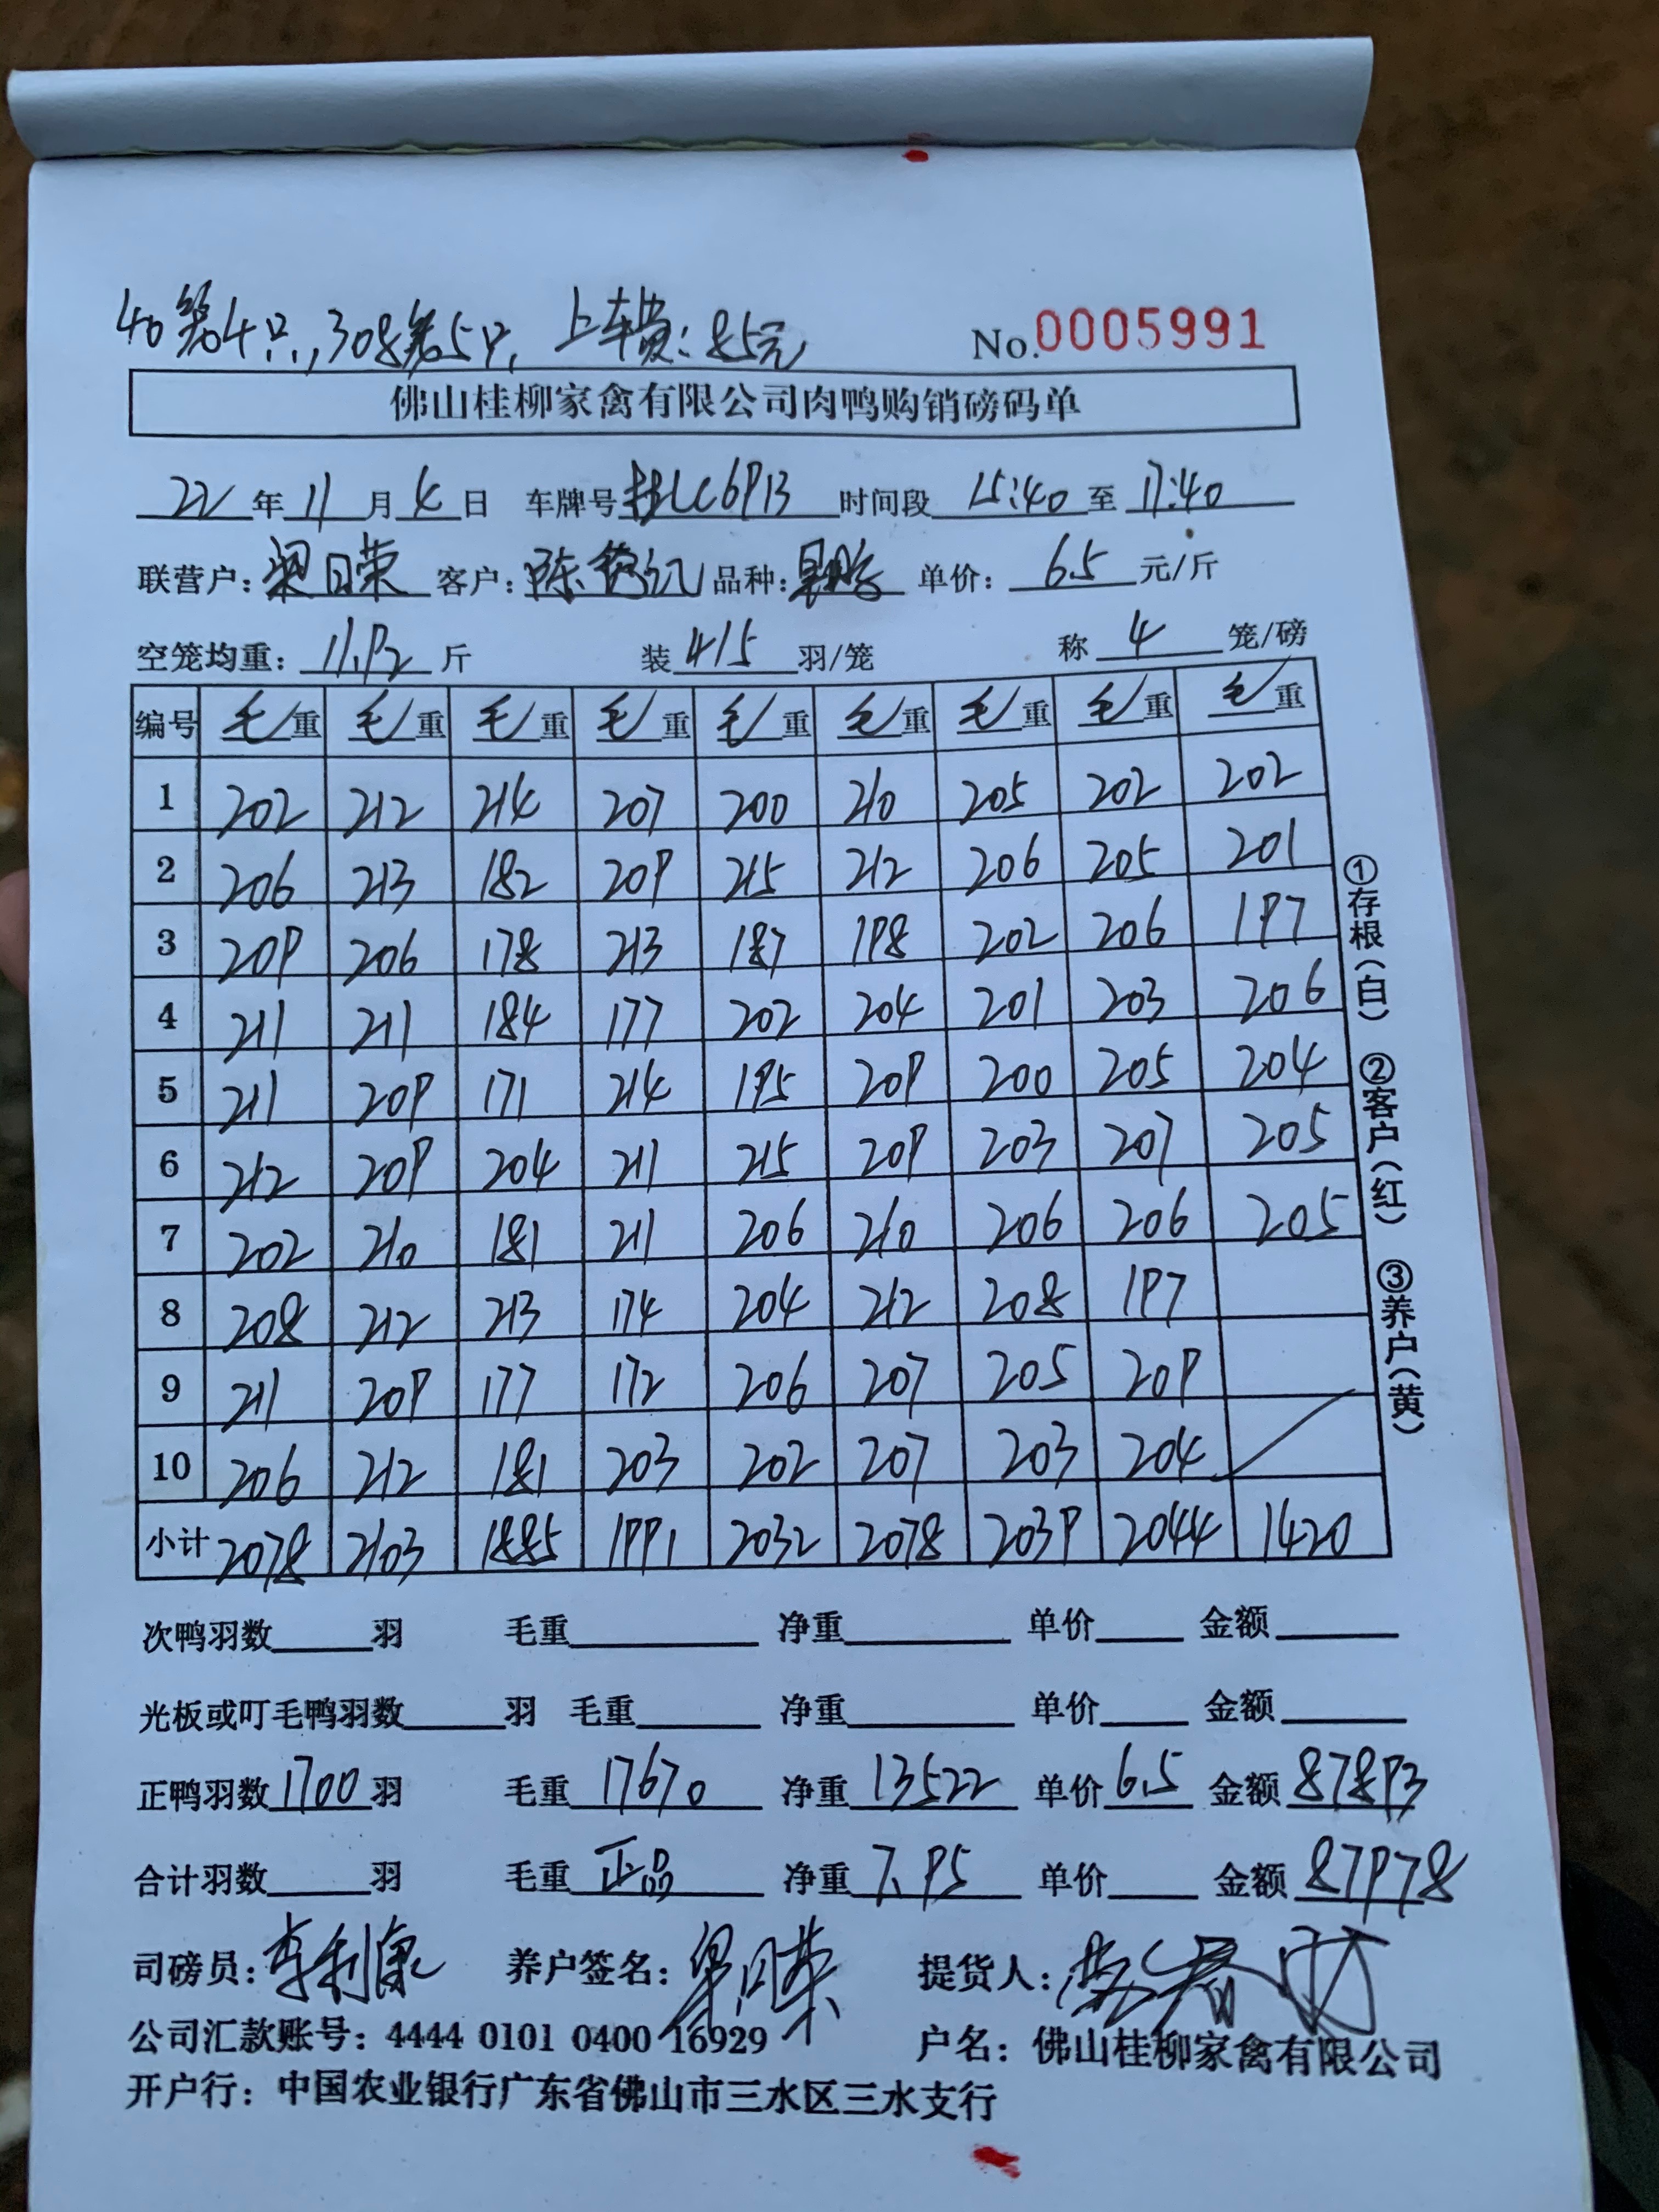 40笼4只,308笼5只, 上车费:85元
No.0005991
佛山桂柳家禽有限公司肉鸭购销磅码单
22年11月4日 车牌号 LC6913 时间段 15:40至17:40
联营户:梁日荣 客户:陈 记 品种: 单价:6.5元/斤
空笼均重:11.92斤 装4/5羽/笼 称4笼/磅
编号 毛重 毛重 毛重 毛重 毛重 毛重 毛重 毛重 毛重
1 202 212 214 207 200 210 205 202 202
2 206 213 182 209 215 212 206 205 201
3 209 206 178 213 187 198 202 206 197
4 211 211 184 177 202 204 201 203 206
5 211 209 171 214 195 209 200 205 204
6 212 209 204 211 215 209 203 207 205
7 202 210 181 211 206 210 206 206 205
8 208 212 213 174 204 212 208 197
9 211 209 177 172 206 207 205 209
10 206 212 181 203 202 207 203 204
小计 2078 2103 1885 1991 2032 2078 2039 2044 1420
①存根(白) ②客户(红) ③养户(黄)
次鸭羽数 羽 毛重 净重 单价 金额
光板或叮毛鸭羽数 羽 毛重 净重 单价 金额
正鸭羽数1700羽 毛重17670 净重13522 单价6.5 金额87893
合计羽数 羽 毛重正品 净重7.95 单价 金额87978
司磅员:李利康 养户签名:梁日荣 提货人:
公司汇款账号:4444 0101 0400 16929 户名:佛山桂柳家禽有限公司
开户行:中国农业银行广东省佛山市三水区三水支行